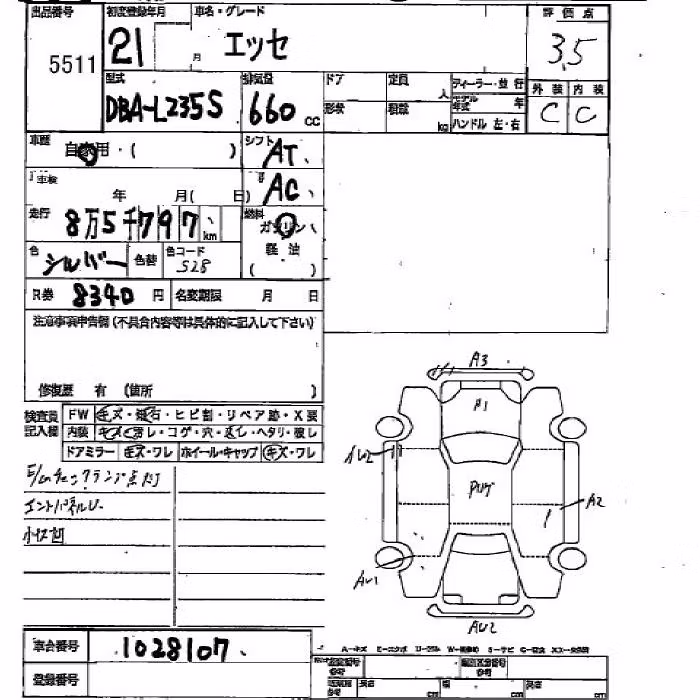 出品番号 初度登録年月 車名・グレード 評価点
5511 21 月 エッセ 3.5
型式 排気量 ドア 定員 人 ディーラー・並行 外装 内装
DBA-L235S 660 cc 形状 積載 kg モデル年式 年 C C
ハンドル 左・右
車歴 自家用・( ) シフト AT
車検 年 月( 日) AC
走行 8万5千797 km 燃料 ガソリン
軽油
( )
色 シルバー 色替 色コード 528
R券 8340 円 名変期限 月 日
注意事項申告欄(不具合内容等は具体的に記入して下さい)
修復歴 有 (箇所 )
検査員記入欄 FW キズ・飛石・ヒビ割・リペア跡・X要
内装 キズ・汚レ・コゲ・穴・返し・ヘタリ・破レ
ドアミラー キズ・ワレ ホイール・キャップ キズ・ワレ
E/gチェックランプ点灯
小キズ凹
A3
A1
AU2
A2
AU1
AU2
車台番号 1028107
登録番号